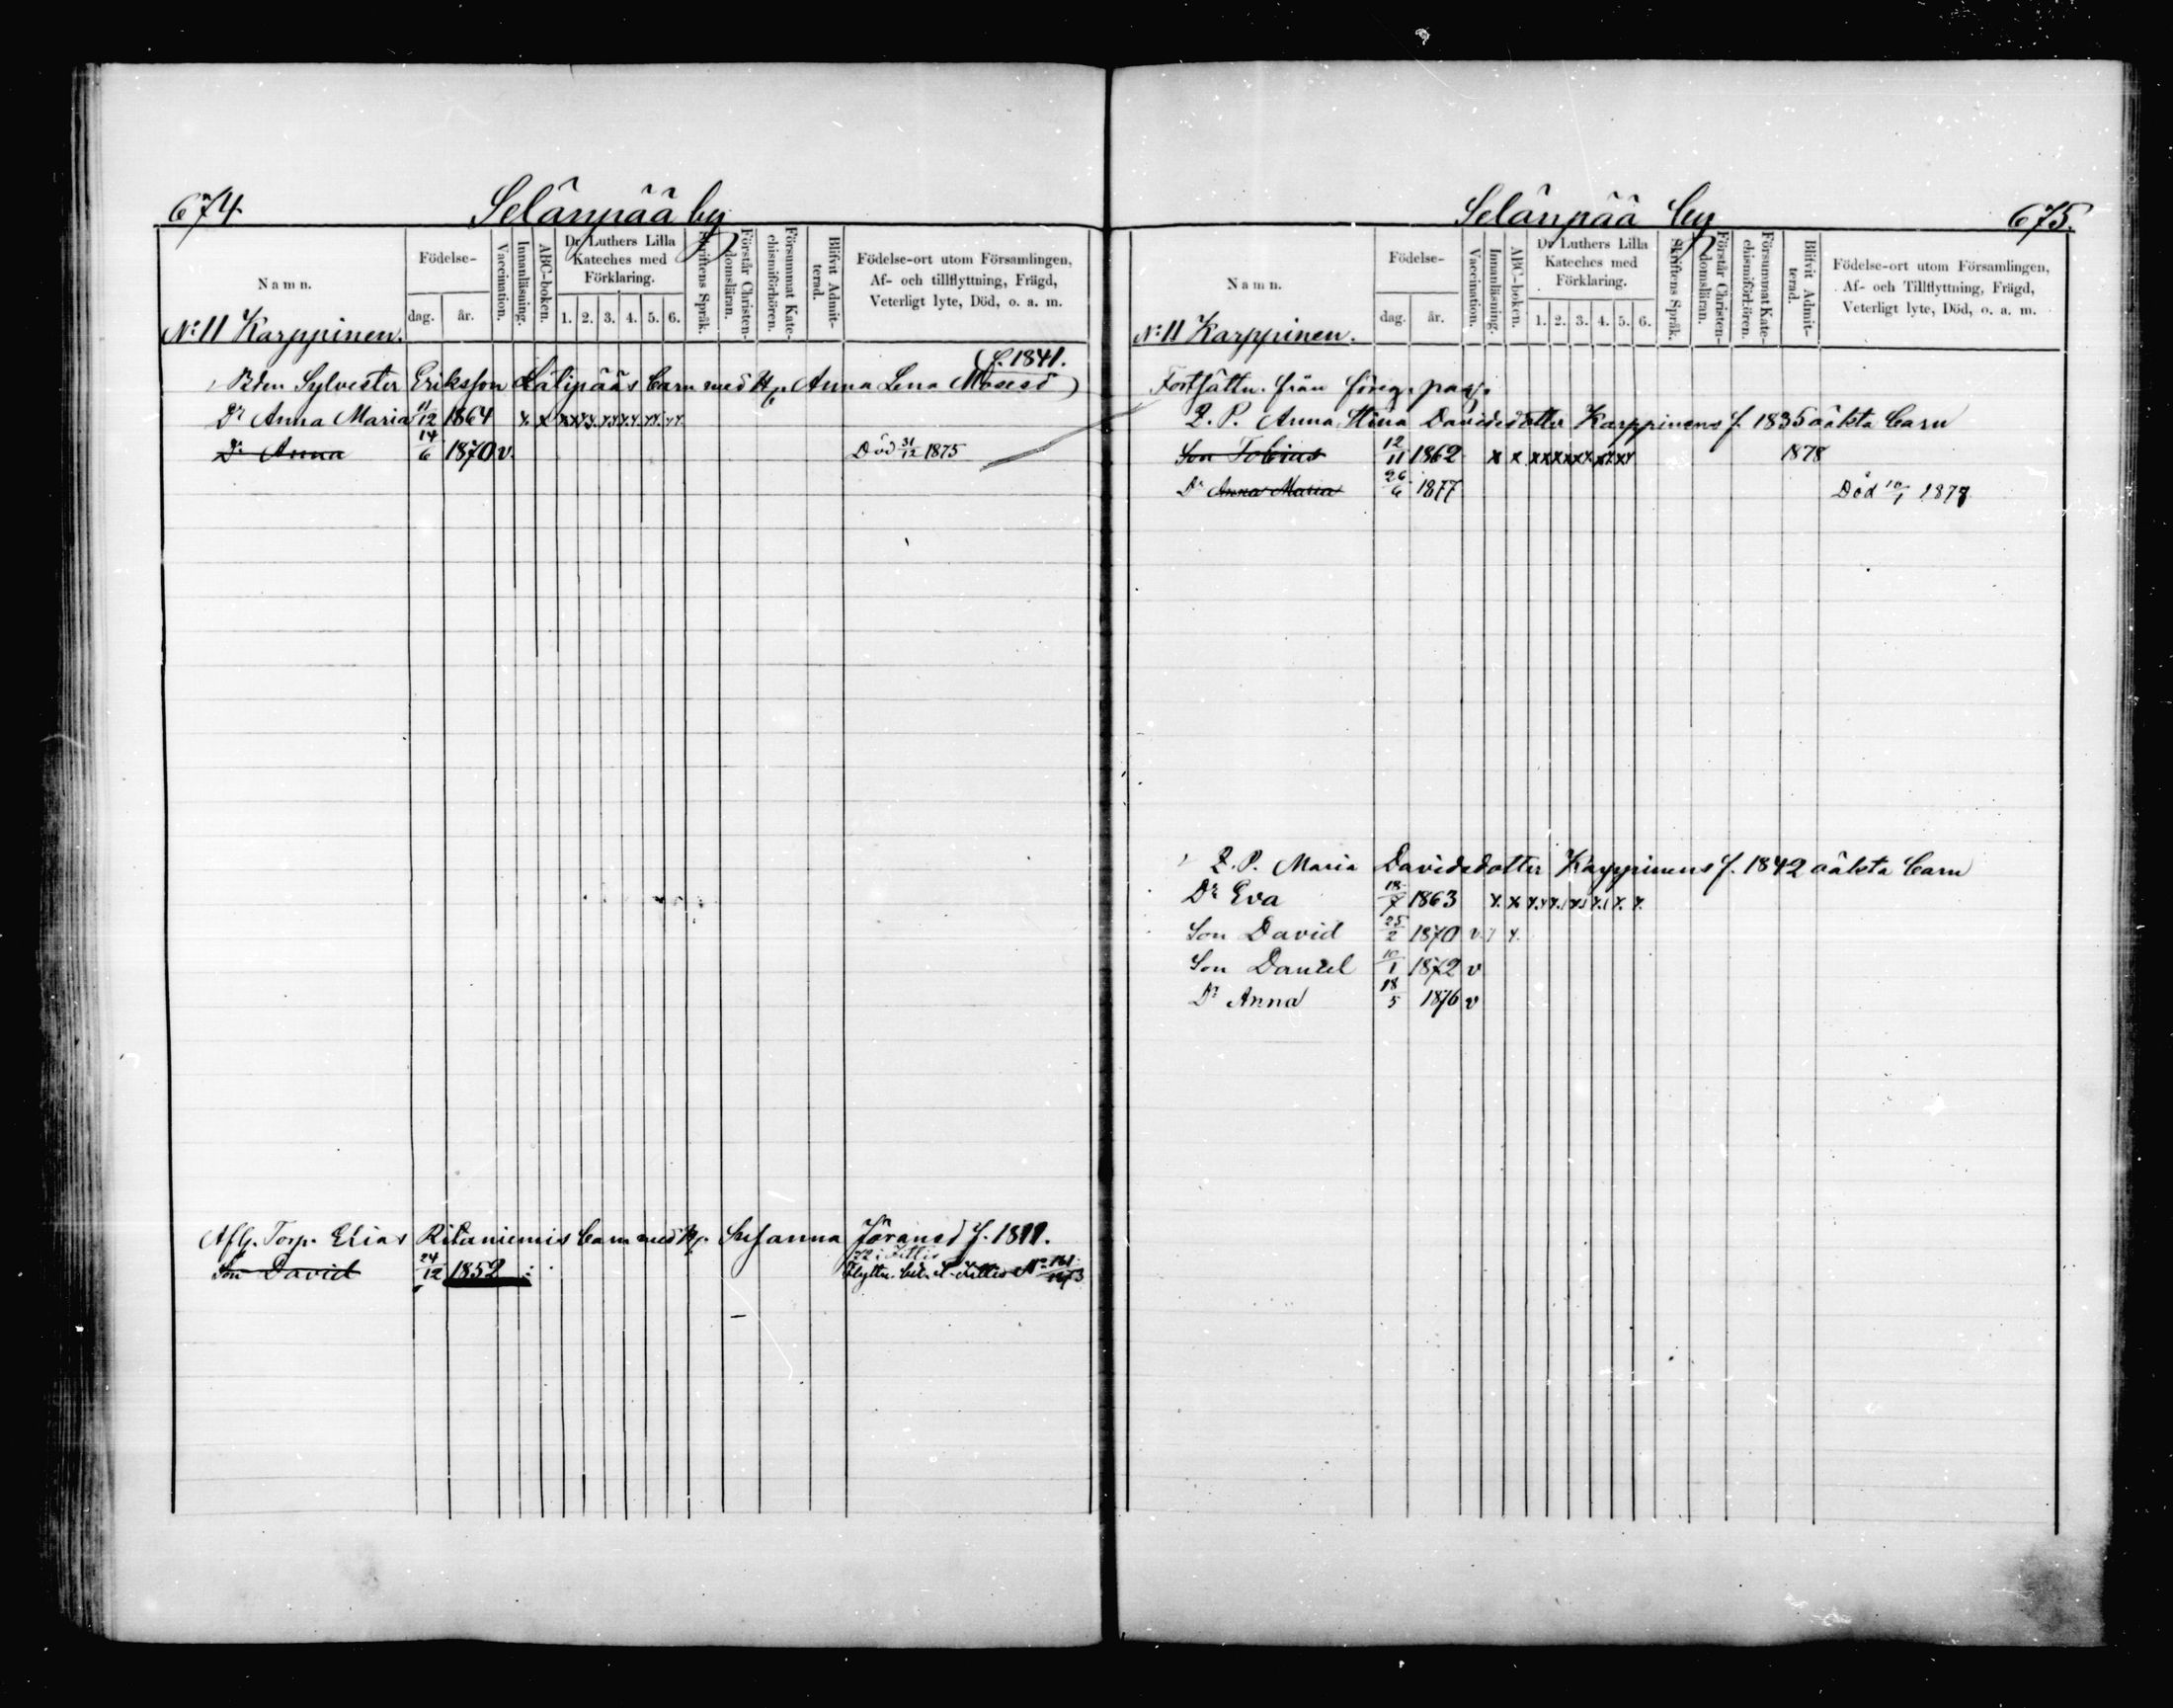 674. Selänpää by
Namn.
Födelse-
dag. år.
Vaccination.
Innanläsning.
ABC-boken.
Dr Luthers Lilla Kateches med Förklaring.
1. 2. 3. 4. 5. 6.
Skriftens Språk.
Förstår Christendomsläran.
Försummat Katechismiförhören.
Blifvit Admitterad.
Födelse-ort utom Församlingen, Af- och tillflyttning, Frägd, Veterligt lyte, Död, o. a. m.
No: 11 Karppinen.
(f. 1841.
Bden Sylvester Eriksson Lälipääs barn med H. Anna Lena Mosesd)
Dr Anna Maria 11/12 1864
Dr Anna 14/6 1870 v. Död 31/12 1875
Afl. Torp. Elias Ritaniemis barn med H. Susanna Göransd f. 1811.
Son David 24/12 1852 Flyttn. bet. t. Jittis No 161 1873
Selänpää by 675.
Namn.
Födelse-
dag. år.
Vaccination.
Innanläsning.
ABC-boken.
Dr Luthers Lilla Kateches med Förklaring.
1. 2. 3. 4. 5. 6.
Skriftens Språk.
Förstår Christendomsläran.
Försummat Katechismiförhören.
Blifvit Admitterad.
Födelse-ort utom Församlingen, Af- och Tillflyttning, Frägd, Veterligt lyte, Död, o. a. m.
No: 11 Karppinen.
Fortsättn. från föreg. pag.
Q. P. Anna Stina Davidsdotter Karppinens f. 1835 oäkta barn
Son Tobias 12/11 1862 1878
Dr Anna Maria 26/6 1877 Död 10/1 1878
Q. P. Maria Davidsdotter Karppinens f. 1842 oäkta barn
Dr Eva 18/7 1863
Son David 25/2 1870 v
Son Daniel 10/1 1872 v
Dr Anna 18/5 1876 v